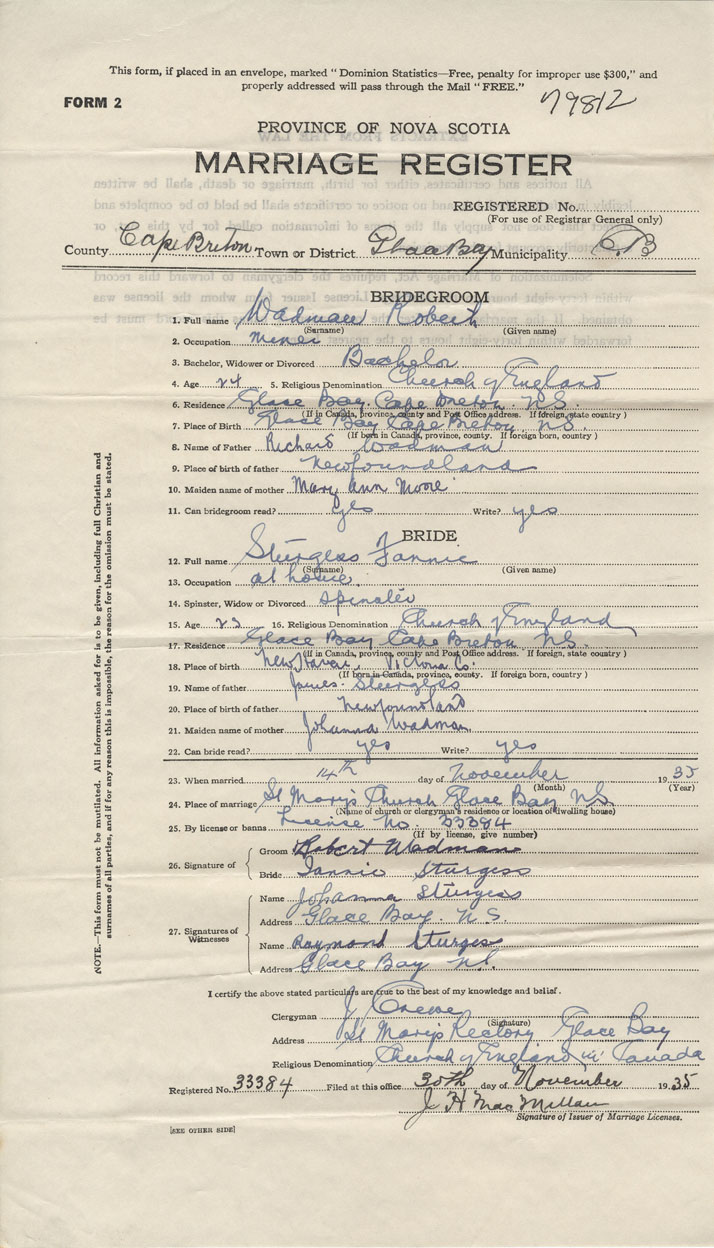 This form, if placed in an envelope, marked "Dominion Statistics—Free, penalty for improper use $300," and
properly addressed will pass through the Mail "FREE."
FORM 2
79812
PROVINCE OF NOVA SCOTIA
MARRIAGE REGISTER
REGISTERED No.
(For use of Registrar General only)
County Cape Breton Town or District Glace Bay Municipality C B
BRIDEGROOM
1. Full name Wadman Robert
(Surname) (Given name)
2. Occupation miner
3. Bachelor, Widower or Divorced Bachelor
4. Age 24 5. Religious Denomination Church of England
6. Residence Glace Bay Cape Breton N.S.
(If in Canada, province, county and Post Office address. If foreign, state country)
7. Place of Birth Glace Bay Cape Breton N.S.
(If born in Canada, province, county. If foreign born, country)
8. Name of Father Richard Wadman
9. Place of birth of father Newfoundland
10. Maiden name of mother Mary Ann Moore
11. Can bridegroom read? yes Write? yes
BRIDE
12. Full name Sturgess Fannie
(Surname) (Given name)
13. Occupation at home
14. Spinster, Widow or Divorced spinster
15. Age 23 16. Religious Denomination Church of England
17. Residence Glace Bay Cape Breton N.S.
(If in Canada, province, county and Post Office address. If foreign, state country)
18. Place of birth New Haven, Victoria Co.
(If born in Canada, province, county. If foreign born, country)
19. Name of father James Sturgess
20. Place of birth of father Newfoundland
21. Maiden name of mother Johanna Wadman
22. Can bride read? yes Write? yes
23. When married 14th day of November 1935
(Month) (Year)
24. Place of marriage St Mary's Church Glace Bay N.S.
(Name of church or clergyman's residence or location of dwelling house)
25. By license or banns License No. 33384
(If by license, give number)
26. Signature of
Groom Robert Wadman
Bride Fannie Sturgess
27. Signatures of Witnesses
Name Johanna Sturgess
Address Glace Bay. N.S.
Name Raymond Sturgess
Address Glace Bay N.S.
I certify the above stated particulars are true to the best of my knowledge and belief.
Clergyman J. Crewe
(Signature)
Address St Mary's Rectory Glace Bay
Religious Denomination Church of England "in" Canada
Registered No. 33384 Filed at this office 30th day of November 1935
J H MacMillan
Signature of Issuer of Marriage Licenses.
[SEE OTHER SIDE]
NOTE.—This form must not be mutilated. All information asked for is to be given, including full Christian and
surnames of all parties, and if for any reason this is impossible, the reason for the omission must be stated.